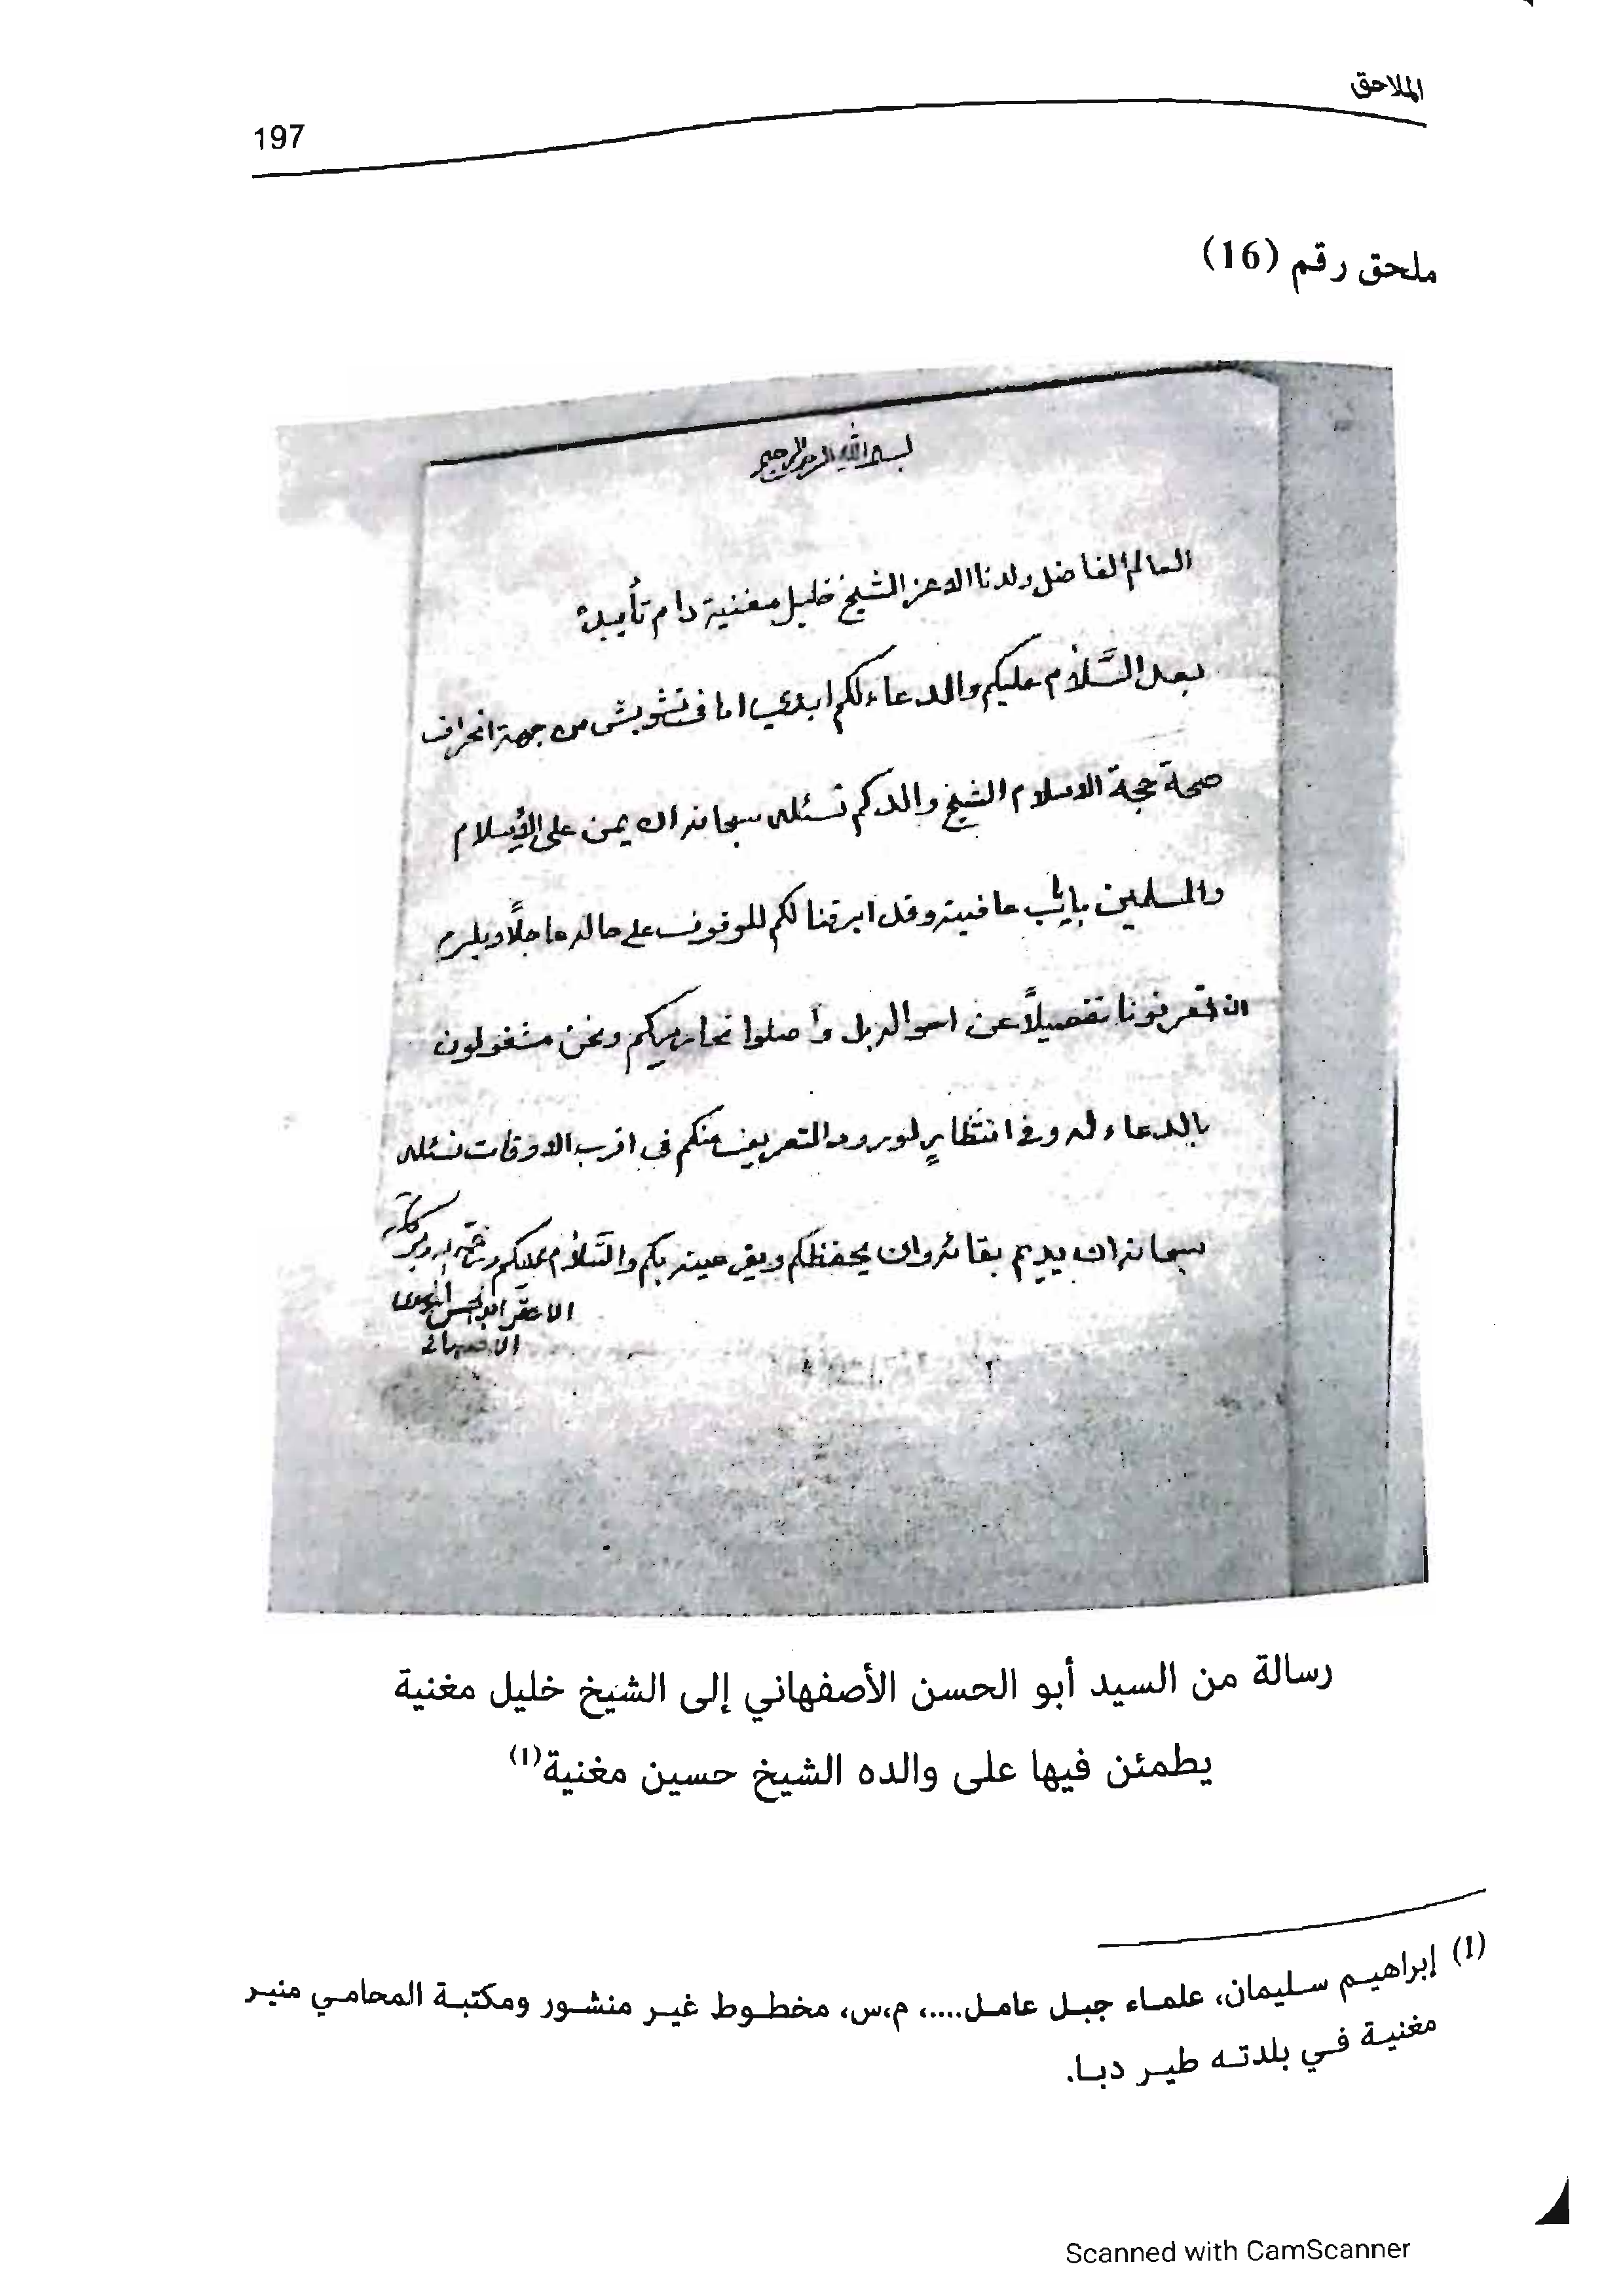 الملاحق
197
ملحق رقم (16)
بسم الله الرحمن الرحيم
العالم الفاضل ولدنا الاعز الشيخ خليل مغنية دام تأييده
بعد السَّلام عليكم والدعاء لكم ابدي اما في تشويش من جهة انحراف
صحة حجة الاسلام الشيخ والدكم نسئله سبحانه ان يمن على الإسلام
والمسلمين عافيته وقد ابرقنا لكم للوقوف على حاله عاجلاً ويلزم
ان تعرفونا تفصيلاً عن احواله بل واصلوا تحاريركم ونحن مشغولون
بالدعاء له وفي انتظارٍ لورود التعريف منكم في اقرب الاوقات نسئله
سبحانه ان يديم بقائه وان يحفظكم ويقر عينه بكم والسَّلام عليكم ورحمة الله وبركاته
الاحقر ابو الحسن الموسوى
الاصفهاني
رسالة من السيد أبو الحسن الأصفهاني إلى الشيخ خليل مغنية
يطمئن فيها على والده الشيخ حسين مغنية(1)
(1) إبراهيم سليمان، علماء جبل عامل.....، م،س، مخطوط غير منشور ومكتبة المحامي منير
مغنية في بلدته طير دبا.
Scanned with CamScanner